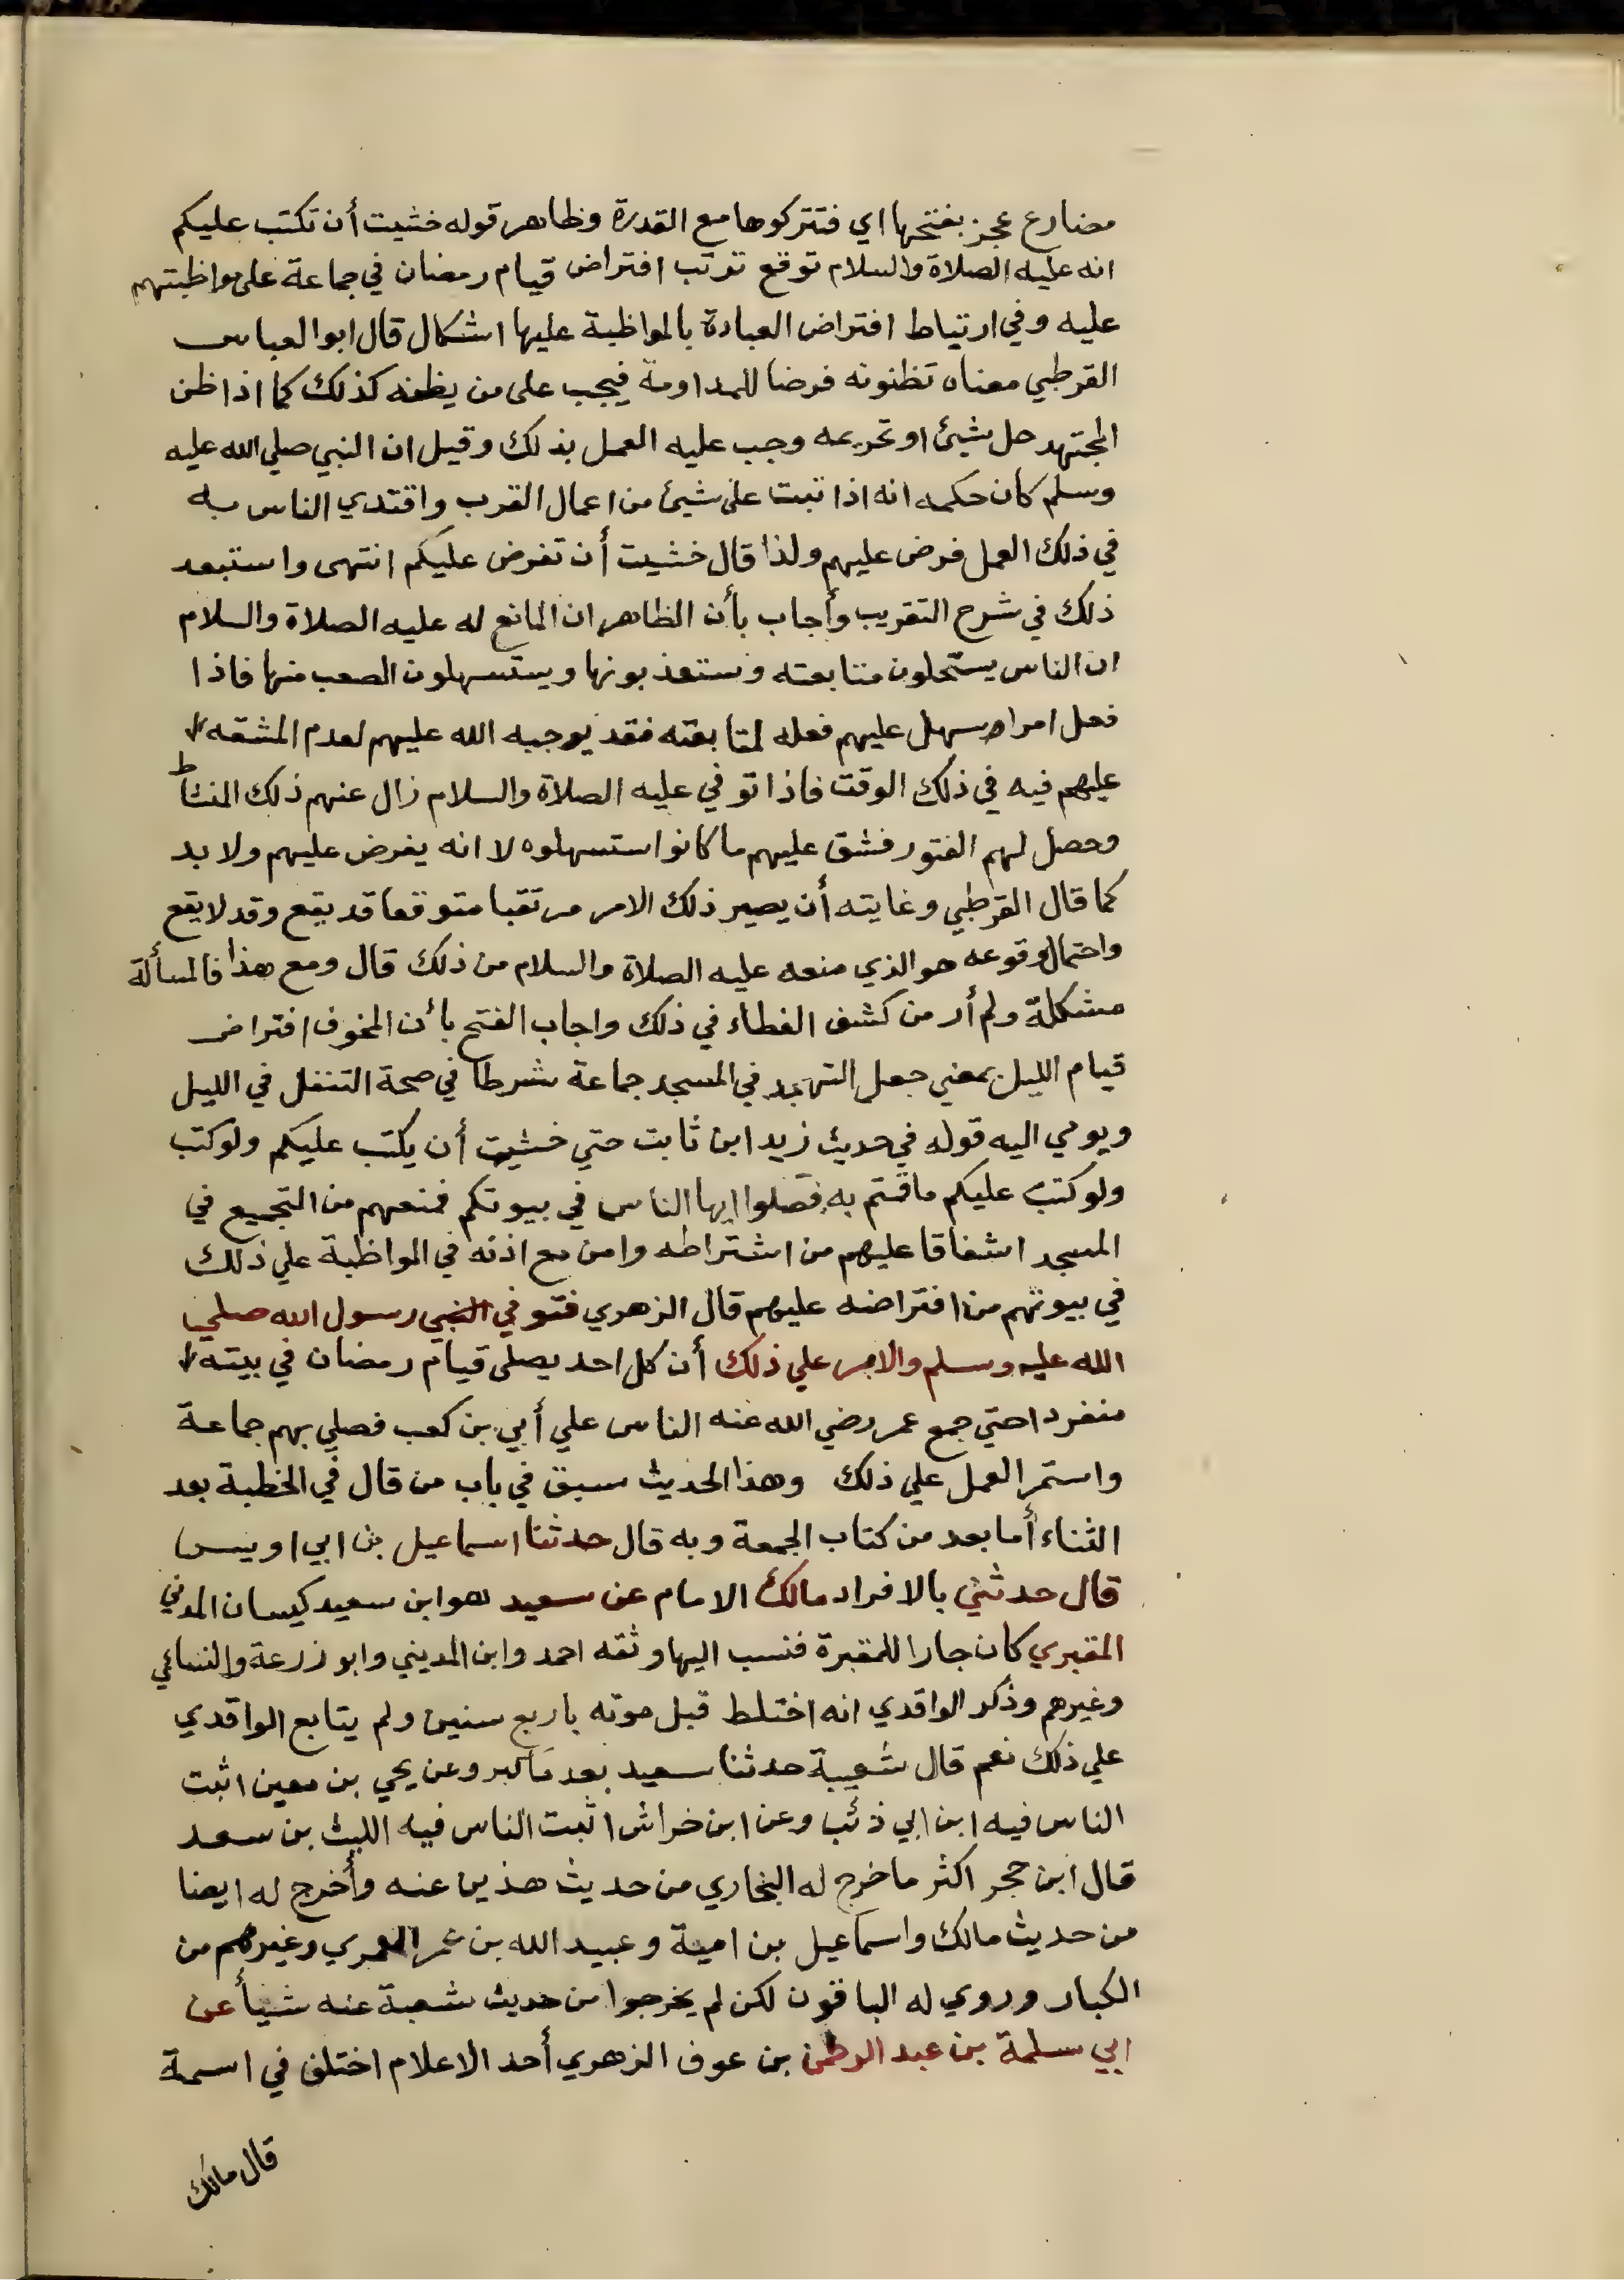 مضارع عجز بفتحها اي فتتركوها مع القدرة وظاهر قوله خشيت أن تكتب عليكم
انه عليه الصلاة والسلام توقع ترتب افتراض قيام رمضان في جماعة على مواظبتهم
عليه وفي ارتباط افتراض العبادة بالمواظبة عليها اشكال قال ابو العباس
القرطبي معناه تظنونه فرضا للمداومة فيجب على من يظنه كذلك كما اذا ظن
المجتهد حل شيئ او تحريمه وجب عليه العمل بذلك وقيل ان النبي صلي الله عليه
وسلم كان حكمه انه اذا ثبت على شيئ من اعمال القرب واقتدي الناس به
في ذلك العمل فرض عليهم ولذا قال خشيت أن تفرض عليكم انتهى واستبعد
ذلك في شرح التقريب وأجاب بأن الظاهر ان المانع له عليه الصلاة والسلام
ان الناس يستحلون متابعته وستعذبونها ويستسهلون الصعب منها فاذا
فعل امرا سهل عليهم فعله لمتابعته فقد يوجبه الله عليهم لعدم المشقه
عليهم فيه في ذلك الوقت فاذا توفي عليه الصلاة والسلام زال عنهم ذلك النشاط
وحصل لهم الفتور فشق عليهم ما كانوا استسهلوه لا انه يفرض عليهم ولا بد
كما قال القرطبي وغايته أن يصير ذلك الامر مرتقبا متوقعا قد يقع وقد لا يقع
واحتمال وقوعه هو الذي منعه عليه الصلاة والسلام من ذلك قال ومع هذا فالمسألة
مشكلة ولم أر من كشف الغطاء في ذلك واجاب الفتح بأن المخوف افتراض
قيام الليل بمعني جعل التهجد في المسجد جماعة شرطا في صحة التنفل في الليل
ويومي اليه قوله في حديث زيد ابن ثابت حتي خشيت أن يكتب عليكم ولو كتب
ولو كتب عليكم ما قمتم به فصلوا ايها الناس في بيوتكم فمنعهم من التجميع في
المسجد اشفاقا عليهم من اشتراطه وامن مع اذنه في المواظبة علي ذلك
في بيوتهم من افتراضه عليهم قال الزهري فتوفي النبي رسول الله صلي
الله عليه وسلم والامر علي ذلك أن كل احد يصلى قيام رمضان في بيته
منفردا حتي جمع عمر رضي الله عنه الناس علي أبي بن كعب فصلي بهم جماعة
واستمر العمل علي ذلك وهذا الحديث سبق في باب من قال في الخطبة بعد
الثناء أما بعد من كتاب الجمعة وبه قال حدثنا اسماعيل بن ابي اويس
قال حدثني بالافراد مالك الامام عن سعيد هو ابن سعيد كيسان المدني
المقبري كان جارا للمقبرة فنسب اليها وثقه احمد وابن المديني وابو زرعة والنسائي
وغيرهم وذكر الواقدي انه اختلط قبل موته باربع سنين ولم يتابع الواقدي
علي ذلك نعم قال شعيبة حدثنا سعيد بعد ما كبر وعن يحي بن معين اثبت
الناس فيه ابن ابي ذئب وعن ابن خراش اثبت الناس فيه الليث بن سعد
قال ابن حجر اكثر ما خرج له البخاري من حديث هذين عنه وأخرج له ايضا
من حديث مالك واسماعيل بن امية وعبيد الله بن عمر العمري وغيرهم من
الكبار وروي له الباقون لكن لم يخرجوا من حديث شعبة عنه شيأ عن
ابي سلمة بن عبد الرحمن بن عوف الزهري أحد الاعلام اختلف في اسمة
قال مالك